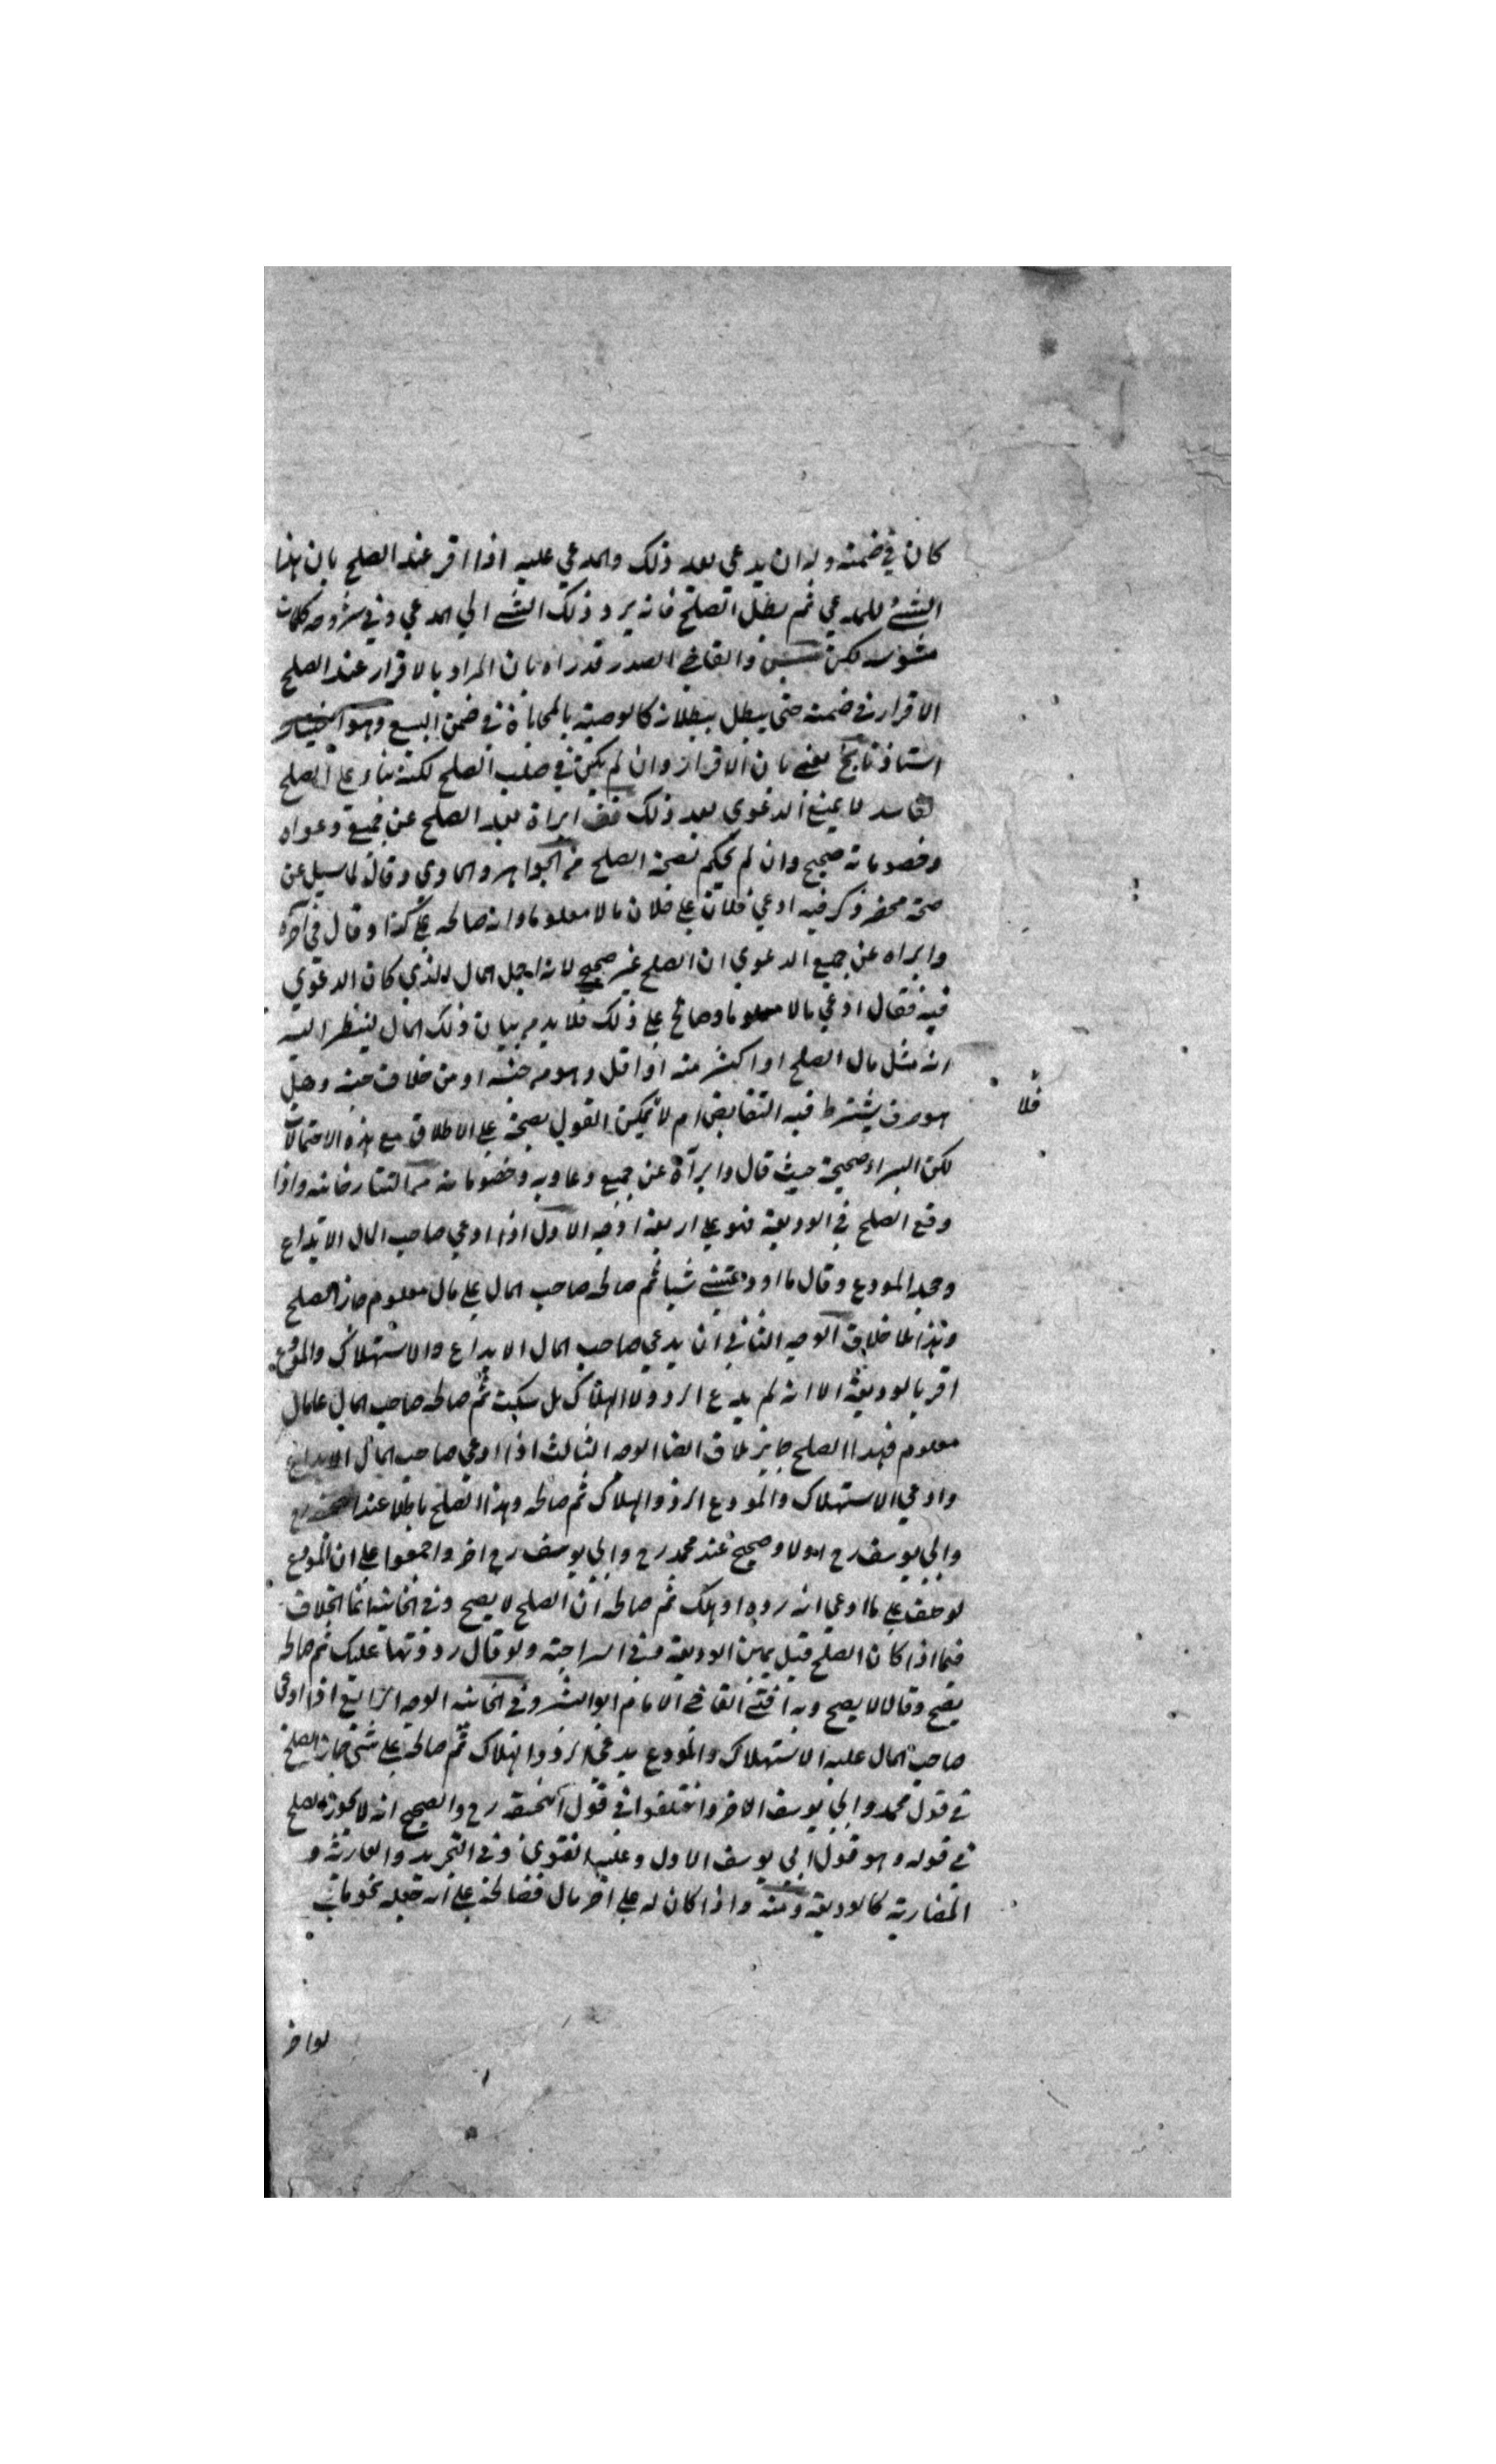 كان في ضمنه وله ان يدعي بعد ذلك والمدعي عليه اذا اقر عند الصلح بان هذا
الشئ للمدعي ثم بطل الصلح فانه يرد ذلك الشئ الي المدعي وفي شروحه كلمات
والقاضي الصدر قدراه بان المراد بالاقرار عند الصلح
الاقرار في ضمنه حتي يبطل ببطلانه كالوصية بالمحاباة في ضمن البيع وهو اختيار
استاذنا يعني بان الاقرار وان لم يكن في صلب الصلح لكنه بناء علي الصلح
الفاسد لا يمنع الدعوي بعد ذلك ابراه بعد الصلح عن جميع دعواه
وخصوماته صحيح وان لم يحكم بصحة الصلح من الجواهر والحاوي وقال لما سيل عن
صحة محضر ذكر فيه ادعي فلان علي فلان مالا معلوما وانه صالحه علي كذا وقال في آخره
وابراه عن جميع الدعوي ان الصلح غير صحيح لانه اجل المال الذي كان الدعوي
فيه فقال ادعي مالا معلوما وصالح علي ذلك فلا بد من بيان ذلك المال لينظر اليه
انه مثل مال الصلح او اكثر منه او اقل وهو من جنسه او من خلاف جنسه وهل
هو صرف يشترط فيه التقابض ام لا يمكن القول بصحته علي الاطلاق مع هذه الاحتمالات
فلا
لكن البراء صحيحة حيث قال وابرآه عن جميع دعاويه وخصوماته من التتارخانيه واذا
وقع الصلح في الوديعة فهو علي اربعة اوجه الاول اذا ادعي صاحب المال الايداع
وجحد المودع وقال ما اودعتني شيا ثم صالحه صاحب المال علي مال معلوم جاز الصلح
وهذا بلا خلاف الوجه الثاني ان يدعي صاحب المال الايداع والاستهلاك والمودع
اقر بالوديعة الا انه لم يدع الرد ولا الهلاك بل سكت ثم صالحه صاحب المال علي مال
معلوم فهذا الصلح جايز ايضا الوجه الثالث اذا ادعي صاحب المال الايداع
وادعي الاستهلاك والمودع الرد والهلاك ثم صالحه وهذا الصلح باطلا عند
وابي يوسف رح اولا وصحيح عند محمد رح وابي يوسف رح اخر واجمعوا علي ان المودع
لو حلف علي ما ادعي انه رده او هلك ثم صالحه ان الصلح لا يصح وفي الخانية انما الخلاف
فيما اذا كان الصلح قبل يمين الوديعة وفي السراجية ولو قال رددتها عليك ثم صالحه
يصح وقالا لا يصح وبه افتي القاضي الامام ابو وفي الخانيه الوجه الرابع اذا ادعي
صاحب المال عليه الاستهلاك والمودع يدعي الرد والهلاك ثم صالحه علي شئ جاز الصلح
في قول محمد وابي يوسف الاخر واختلفوا في قول رح والصحيح انه لا يجوز الصلح
في قوله وهو قول ابي يوسف الاول وعليه الفتوي وفي التجريد والعارية و
المضاربة كالوديعة ومنه واذا كان له علي اخر مال فصالحه علي ان جعله نجومات